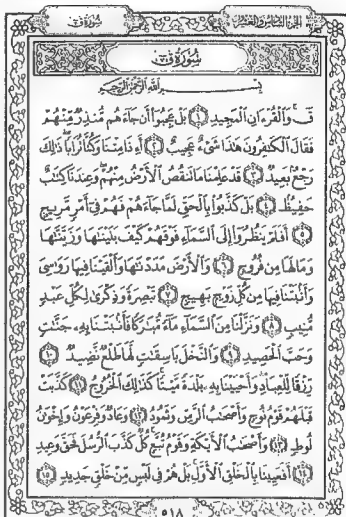 سُورَةُ قٓ
الجزء السادس والعشرون
سُورَةُ قٓ
بِسْمِ اللَّهِ الرَّحْمَٰنِ الرَّحِيمِ
قٓ ۚ وَٱلْقُرْءَانِ ٱلْمَجِيدِ ١ بَلْ عَجِبُوٓا۟ أَن جَآءَهُم مُّنذِرٌ مِّنْهُمْ
فَقَالَ ٱلْكَٰفِرُونَ هَٰذَا شَىْءٌ عَجِيبٌ ٢ أَءِذَا مِتْنَا وَكُنَّا تُرَابًا ۖ ذَٰلِكَ
رَجْعٌۢ بَعِيدٌ ٣ قَدْ عَلِمْنَا مَا تَنقُصُ ٱلْأَرْضُ مِنْهُمْ ۖ وَعِندَنَا كِتَٰبٌ
حَفِيظٌۢ ٤ بَلْ كَذَّبُوا۟ بِٱلْحَقِّ لَمَّا جَآءَهُمْ فَهُمْ فِىٓ أَمْرٍ مَّرِيجٍ
٥ أَفَلَمْ يَنظُرُوٓا۟ إِلَى ٱلسَّمَآءِ فَوْقَهُمْ كَيْفَ بَنَيْنَٰهَا وَزَيَّنَّٰهَا
وَمَا لَهَا مِن فُرُوجٍ ٦ وَٱلْأَرْضَ مَدَدْنَٰهَا وَأَلْقَيْنَا فِيهَا رَوَٰسِىَ
وَأَنۢبَتْنَا فِيهَا مِن كُلِّ زَوْجٍۭ بَهِيجٍ ٧ تَبْصِرَةً وَذِكْرَىٰ لِكُلِّ عَبْدٍ
مُّنِيبٍ ٨ وَنَزَّلْنَا مِنَ ٱلسَّمَآءِ مَآءً مُّبَٰرَكًا فَأَنۢبَتْنَا بِهِۦ جَنَّٰتٍ
وَحَبَّ ٱلْحَصِيدِ ٩ وَٱلنَّخْلَ بَاسِقَٰتٍ لَّهَا طَلْعٌ نَّضِيدٌ ١٠
رِّزْقًا لِّلْعِبَادِ ۖ وَأَحْيَيْنَا بِهِۦ بَلْدَةً مَّيْتًا ۚ كَذَٰلِكَ ٱلْخُرُوجُ ١١ كَذَّبَتْ
قَبْلَهُمْ قَوْمُ نُوحٍ وَأَصْحَٰبُ ٱلرَّسِّ وَثَمُودُ ١٢ وَعَادٌ وَفِرْعَوْنُ وَإِخْوَٰنُ
لُوطٍ ١٣ وَأَصْحَٰبُ ٱلْأَيْكَةِ وَقَوْمُ تُبَّعٍ ۚ كُلٌّ كَذَّبَ ٱلرُّسُلَ فَحَقَّ وَعِيدِ
١٤ أَفَعَيِينَا بِٱلْخَلْقِ ٱلْأَوَّلِ ۚ بَلْ هُمْ فِى لَبْسٍ مِّنْ خَلْقٍ جَدِيدٍ ١٥
٥١٨